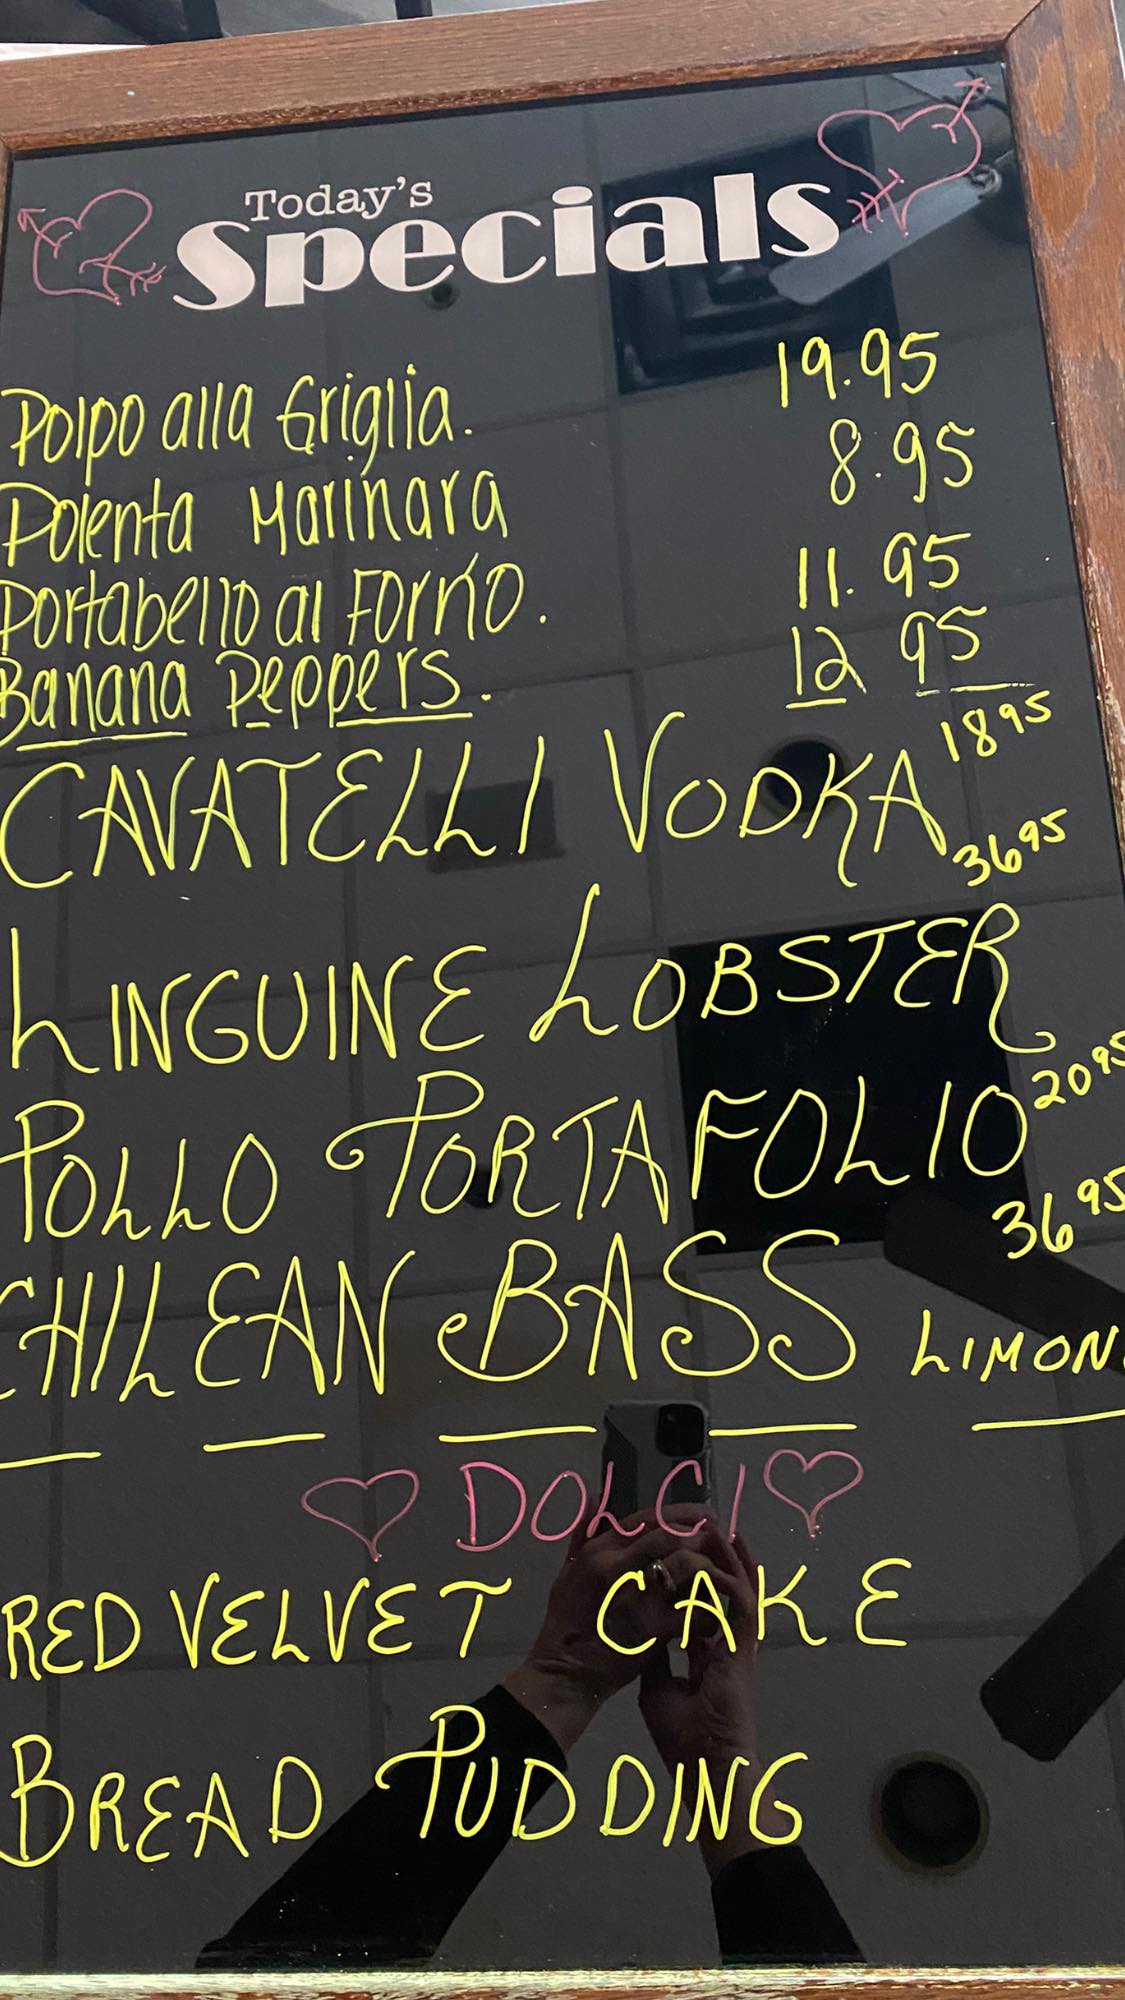 Today's
Specials
Polpo alla Griglia. 19.95
Polenta Marinara 8.95
Portabello al Forno. 11.95
Banana Peppers. 12 95
CAVATELLI VODKA 18 95
LINGUINE LOBSTER 36 95
POLLO PORTAFOLIO 20 95
CHILEAN BASS LIMON 36 95
DOLCI
RED VELVET CAKE
BREAD PUDDING